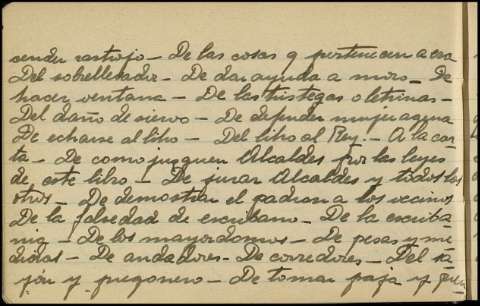 vender rastrojo — De las cosas q pertenecen a era
Del sobrellevador — De dar ayuda a moro — De
hacer ventana — De las tristegas o letrinas —
Del daño de siervo — De defender mujer agena
De echarse al libro — Del libro al Rey. — A la car-
ta — De como juzguen Alcaldes por las leyes
de este libro — De jurar Alcaldes y todos los
otros — De demostrar el padron a los vecinos
De la falsedad de escribano — De la escriba-
nia — De los mayordomos — De pesas y me-
didas — De andadores — De corredores — Del sa-
yón y pregonero — De tomar paja y